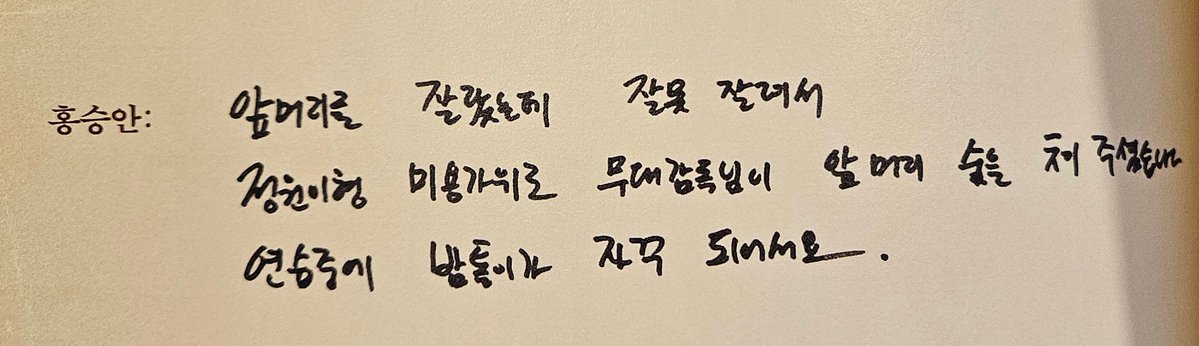 홍승안: 앞머리를 잘랐는데 잘못 잘려서
정원이형 미용가위로 무대감독님이 앞머리 숱을 쳐 주셨습니다
연습중에 밤톨이가 자꾸 되어서요.